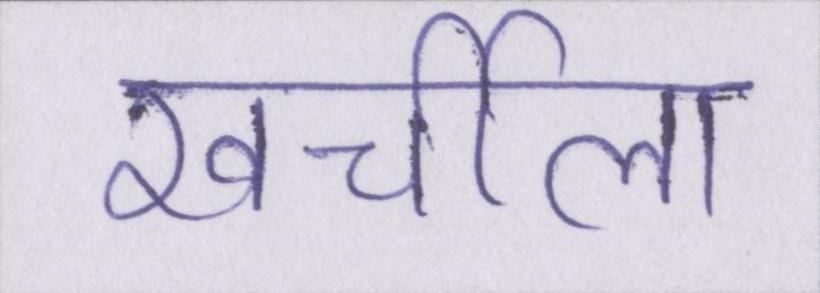 खर्चीला